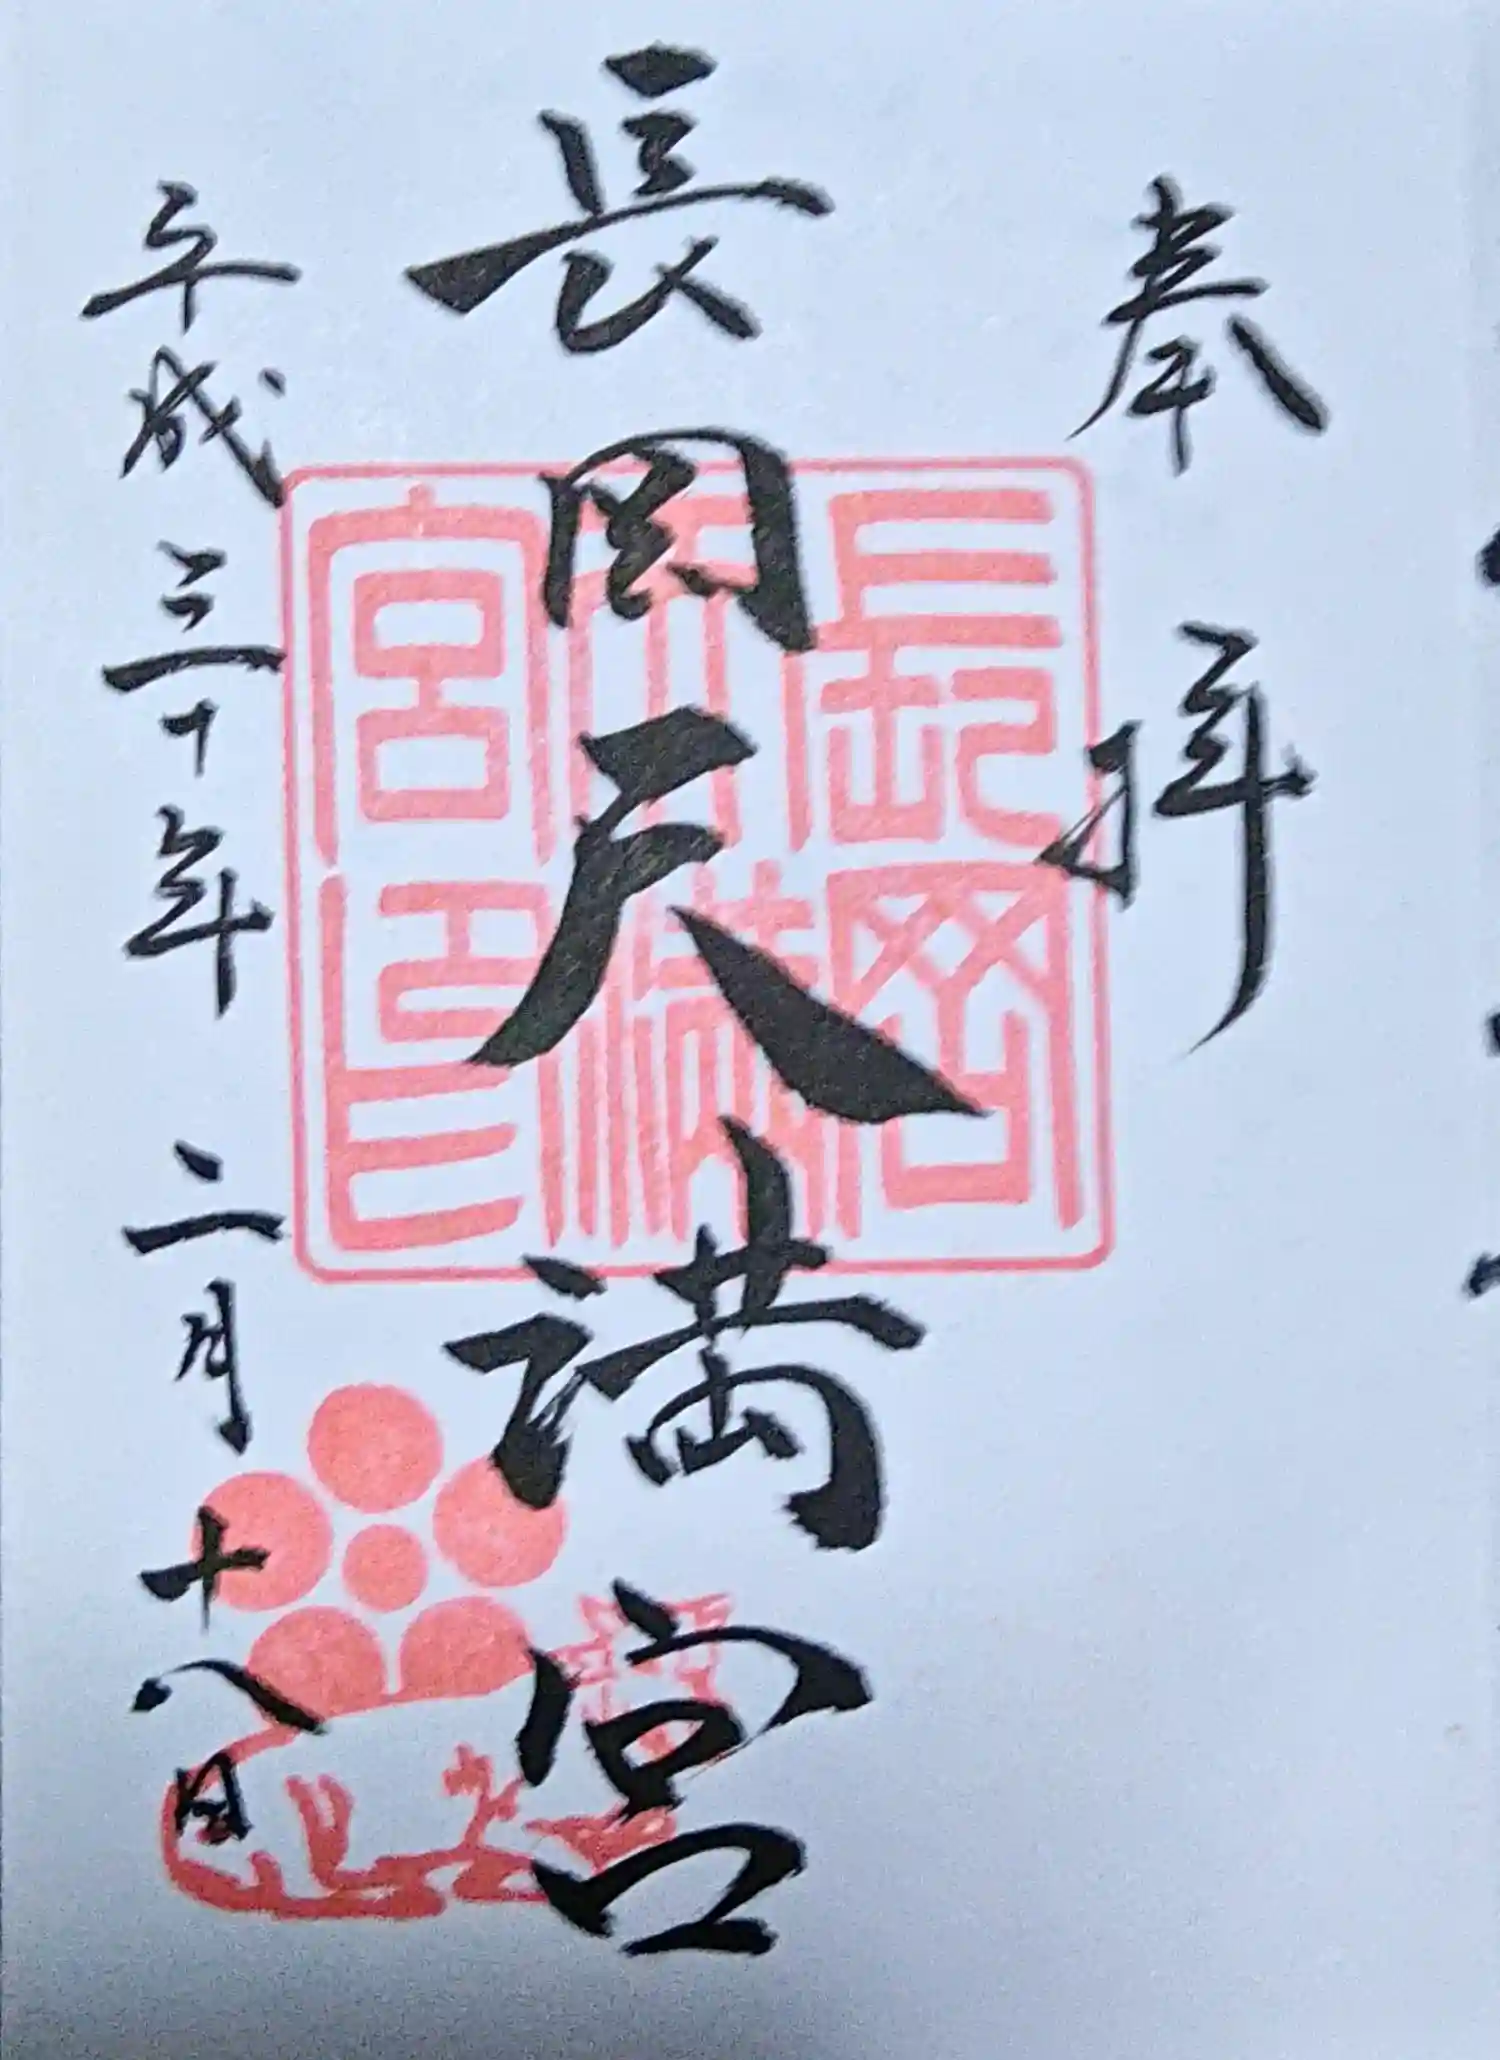 奉拝
長岡天満宮
長岡天満宮印
平成三十年二月十八日